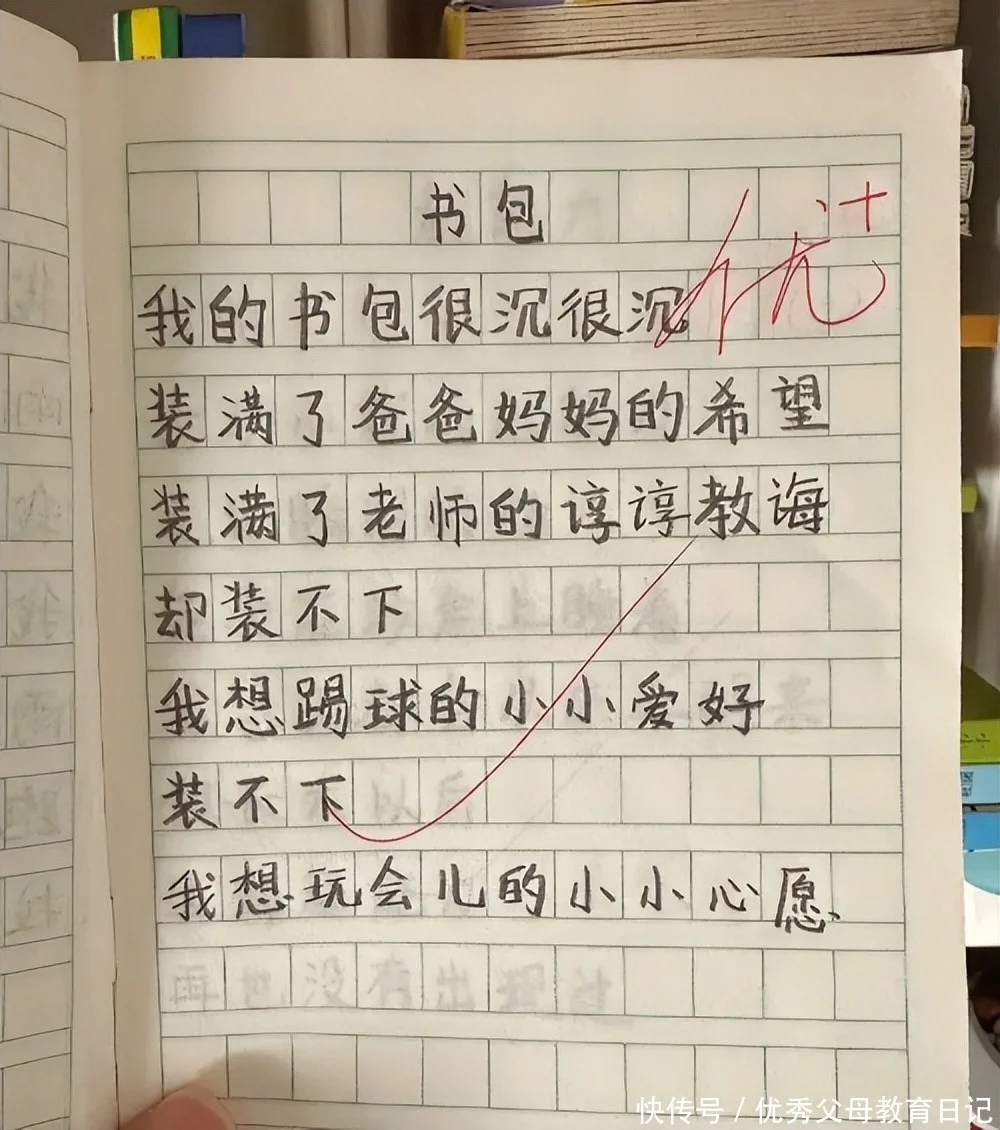 书包
优+
我的书包很沉很沉。
装满了爸爸妈妈的希望
装满了老师的谆谆教诲
却装不下
我想踢球的小小爱好
装不下
我想玩会儿的小小心愿、
快传号/优秀父母教育日记